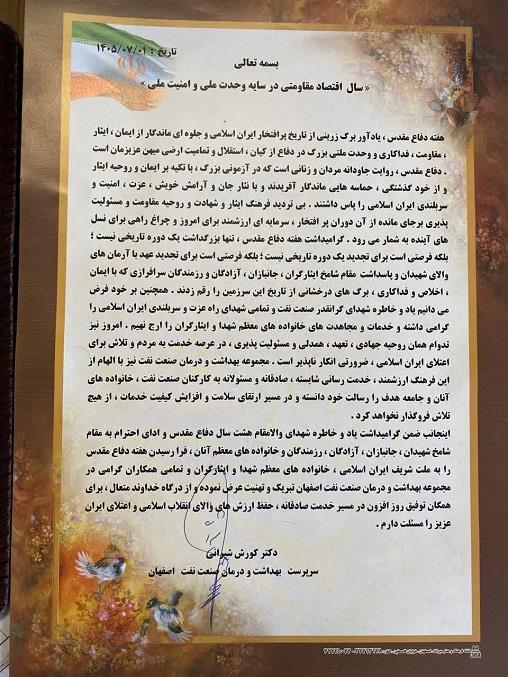 تاریخ : ۱۴۰۵/۰۷/۰۱
بسمه تعالی
« سال اقتصاد مقاومتی در سایه وحدت ملی و امنیت ملی »
هفته دفاع مقدس ، یادآور برگ زرینی از تاریخ پرافتخار ایران اسلامی و جلوه ای ماندگار از ایمان ، ایثار
، مقاومت ، فداکاری و وحدت ملتی بزرگ در دفاع از کیان ، استقلال و تمامیت ارضی میهن عزیزمان است
. دفاع مقدس ، روایت جاودانه مردان و زنانی است که در آزمونی بزرگ ، با تکیه بر ایمان و روحیه ایثار
و از خود گذشتگی ، حماسه هایی ماندگار آفریدند و با نثار جان و آرامش خویش ، عزت ، امنیت و
سربلندی ایران اسلامی را پاس داشتند . بی تردید فرهنگ ایثار و شهادت و روحیه مقاومت و مسئولیت
پذیری برجای مانده از آن دوران پر افتخار ، سرمایه ای ارزشمند برای امروز و چراغ راهی برای نسل
های آینده به شمار می رود . گرامیداشت هفته دفاع مقدس ، تنها بزرگداشت یک دوره تاریخی نیست ؛
بلکه فرصتی است برای تجدید یک دوره تاریخی نیست ؛ بلکه فرصتی است برای تجدید عهد با آرمان های
والای شهیدان و پاسداشت مقام شامخ ایثارگران ، جانبازان ، آزادگان و رزمندگان سرافرازی که با ایمان
، اخلاص و فداکاری ، برگ های درخشانی از تاریخ این سرزمین را رقم زدند . همچنین بر خود فرض
می دانیم یاد و خاطره شهدای گرانقدر صنعت نفت و تمامی شهدای راه عزت و سربلندی ایران اسلامی را
گرامی داشته و خدمات و مجاهدت های خانواده های معظم شهدا و ایثارگران را ارج نهیم . امروز نیز
تدوام همان روحیه جهادی ، تعهد ، همدلی و مسئولیت پذیری ، در عرصه خدمت به مردم و تلاش برای
اعتلای ایران اسلامی ، ضرورتی انکار ناپذیر است . مجموعه بهداشت و درمان صنعت نفت نیز با الهام از
این فرهنگ ارزشمند ، خدمت رسانی شایسته ، صادقانه و مسئولانه به کارکنان صنعت نفت ، خانواده های
آنان و جامعه هدف را رسالت خود دانسته و در مسیر ارتقای سلامت و افزایش کیفیت خدمات ، از هیچ
تلاش فروگذار نخواهد کرد .
اینجانب ضمن گرامیداشت یاد و خاطره شهدای والامقام هشت سال دفاع مقدس و ادای احترام به مقام
شامخ شهیدان ، جانبازان ، آزادگان ، رزمندگان و خانواده های معظم آنان ، فرا رسیدن هفته دفاع مقدس
را به ملت شریف ایران اسلامی ، خانواده های معظم شهدا و ایثارگران و تمامی همکاران گرامی در
مجموعه بهداشت و درمان صنعت نفت اصفهان تبریک و تهنیت عرض نموده و از درگاه خداوند متعال ، برای
همگان توفیق روز افزون در مسیر خدمت صادقانه ، حفظ ارزش های والای انقلاب اسلامی و اعتلای ایران
عزیز را مسئلت دارم .
دکتر کورش شیرانی
سرپرست بهداشت و درمان صنعت نفت اصفهان